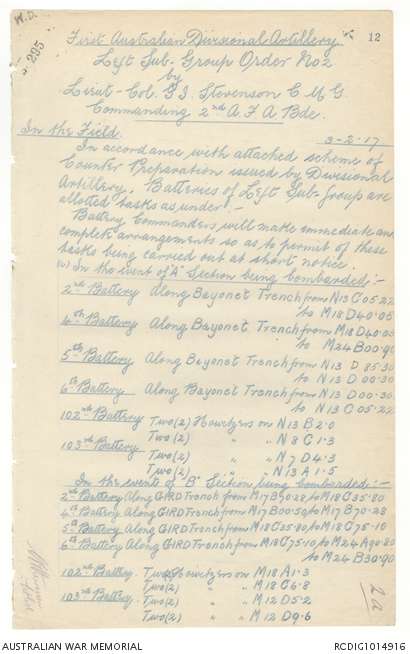 W.D.
295
12
First Australian Divisional Artillery.
Left Sub-Group Order No 2
by
Lieut-Col. G I Stevenson C M G.
Commanding 2nd A F A Bde.
In the Field.
3-2-17
In accordance with attached scheme of
Counter Preparation issued by Divisional
Artillery. Batteries of Left Sub-group are
allotted tasks as under:-
Battery Commanders will make immediate and
complete arrangements so as to permit of these
tasks being carried out at short notice.
(a) In the event of "A" Section being bombarded:-
2nd Battery Along Bayonet Trench from N13 C 05.22
to M18 D 40.05
4th Battery Along Bayonet Trench from M18 D 40.05
to M24 B 00.90
5th Battery Along Bayonet Trench from N13 D 85.30
to N13 D 00.30
6th Battery Along Bayonet Trench from N13 D 00.30
to N13 C 05.22
102nd Battery Two (2) Howitzers on N13 B 2.0
Two (2) " " N8 C 1.3
103rd Battery Two (2) " " N7 D 4.3
Two (2) " " N13 A 1.5
In the event of "B" Section being bombarded:-
2nd Battery Along GIRD Trench from M17 B 70.28 to M18 C 35.80
4th Battery Along GIRD Trench from M17 B 00.50 to M17 B 70.28
5th Battery Along GIRD Trench from M18 C 35.80 to M18 C 75.10
6th Battery Along GIRD Trench from M18 C 75.10 to M24 A 90.80
to M24 B 30.90
102nd Battery. Two (2) Howitzers on M18 A 1.3
Two (2) " " M18 C 6.8
103rd Battery Two (2) " " M12 D 5.2
Two (2) " " M12 D 9.6
2a
AUSTRALIAN WAR MEMORIAL
RCDIG1014916